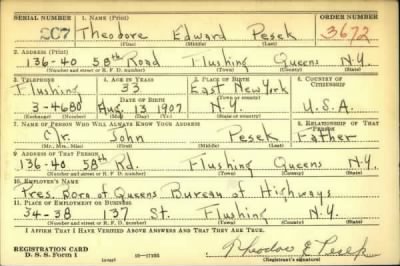 SERIAL NUMBER 1. NAME (Print) ORDER NUMBER
Theodore Edward Pesek 3672
(First) (Middle) (Last)
2. ADDRESS (Print)
136-40 58th Road Flushing Queens N.Y.
(Number and street or R. F. D. number) (Town) (County) (State)
3. TELEPHONE 4. AGE IN YEARS 5. PLACE OF BIRTH 6. COUNTRY OF CITIZENSHIP
Flushing 33 East New York
(Town or county)
3-4680 DATE OF BIRTH
Aug. 13 1907 N.Y. U.S.A.
(Exchange) (Number) (Mo.) (Day) (Yr.) (State or country)
7. NAME OF PERSON WHO WILL ALWAYS KNOW YOUR ADDRESS 8. RELATIONSHIP OF THAT PERSON
Mr. John Pesek Father
(Mr., Mrs., Miss) (First) (Middle) (Last)
9. ADDRESS OF THAT PERSON
136-40 58th Rd. Flushing Queens N.Y.
(Number and street or R. F. D. number) (Town) (County) (State)
10. EMPLOYER'S NAME
Pres. Boro of Queens Bureau of Highways
11. PLACE OF EMPLOYMENT OR BUSINESS
34-38 137 St. Flushing N.Y.
(Number and street or R. F. D. number) (Town) (County) (State)
I AFFIRM THAT I HAVE VERIFIED ABOVE ANSWERS AND THAT THEY ARE TRUE.
REGISTRATION CARD
D. S. S. Form 1 (over) Theodore E Pesek
(Registrant's signature)